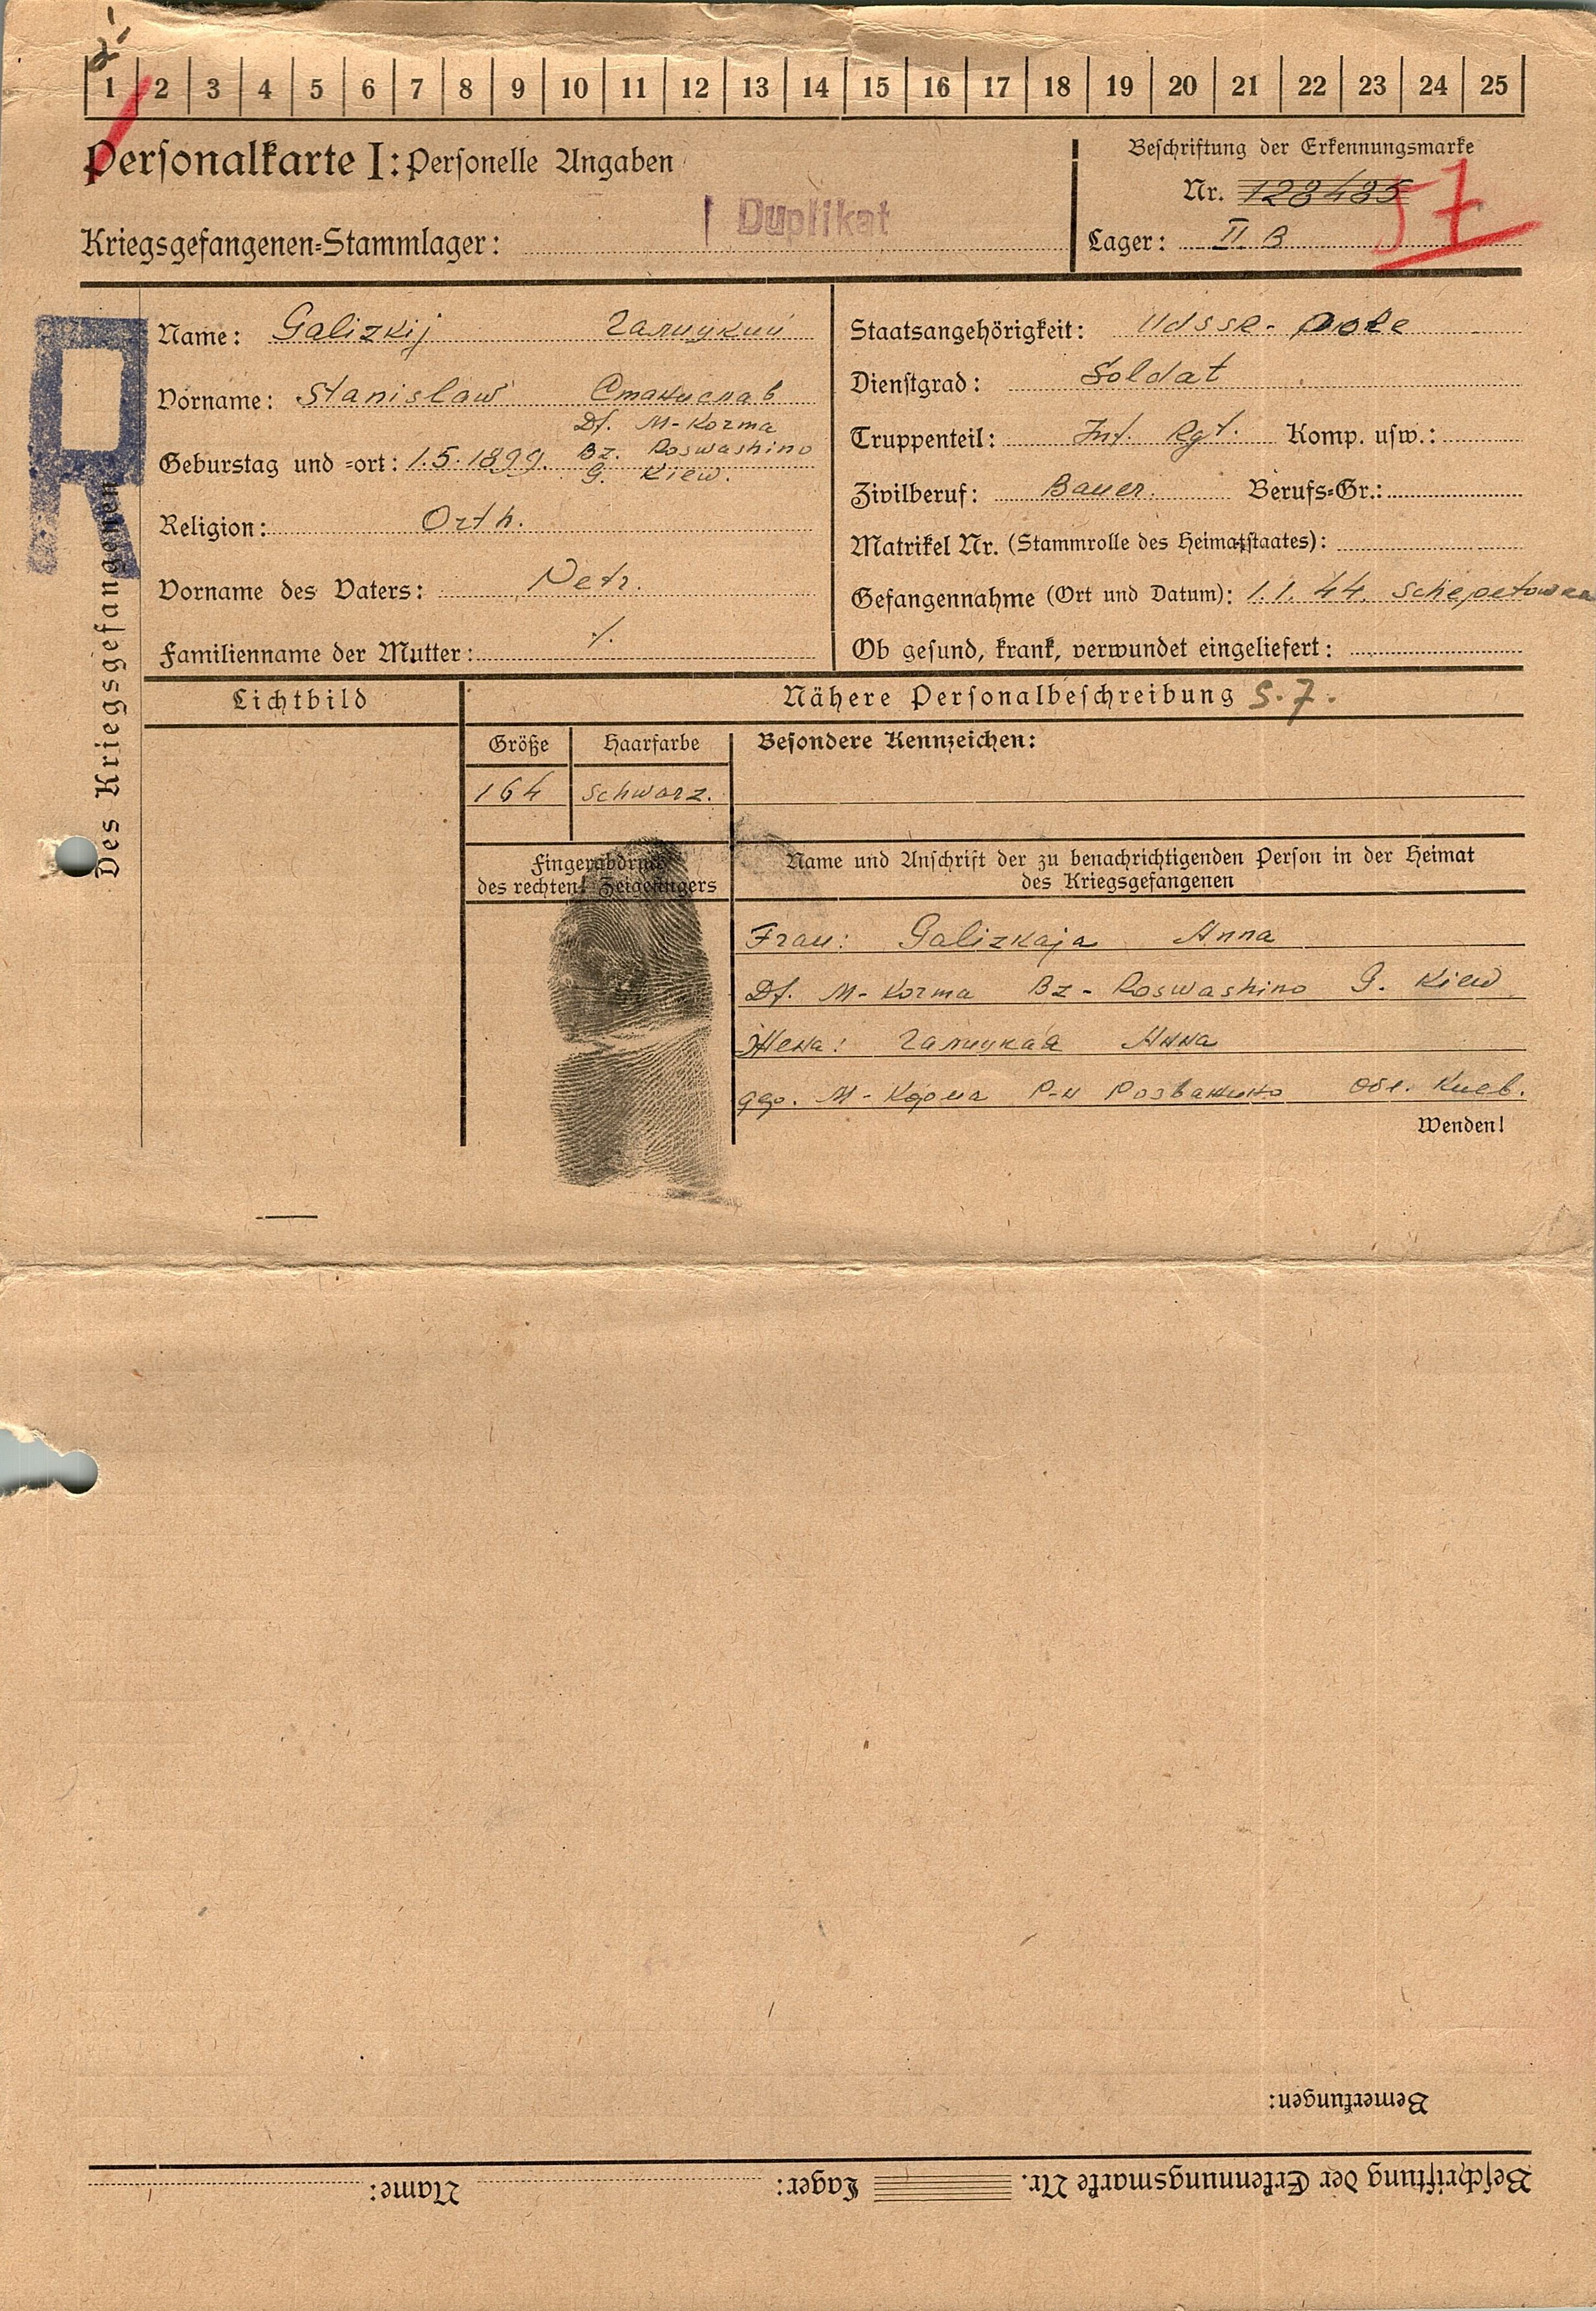 1 2 3 4 5 6 7 8 9 10 11 12 13 14 15 16 17 18 19 20 21 22 23 24 25
Personalkarte I: Personelle Angaben
Duplikat
Kriegsgefangenen-Stammlager:
Beschriftung der Erkennungsmarke
Nr. 128485
57
Lager: II B
R
Des Kriegsgefangenen
Name: Galizkij Галицкий
Vorname: Stanislaw Станислав
Df. M-Korma
Geburstag und -ort: 1.5.1899. Bz. Roswashino
G. Kiew.
Religion: Orth.
Vorname des Vaters: Petr.
Familienname der Mutter: ·/.
Staatsangehörigkeit: UdSSR- Pole
Dienstgrad: Soldat
Truppenteil: Inf. Rgt. Komp. usw.:
Zivilberuf: Bauer. Berufs-Gr.:
Matrikel Nr. (Stammrolle des Heimatstaates):
Gefangennahme (Ort und Datum): 1.1.44. Schepetowka
Ob gesund, krank, verwundet eingeliefert:
Lichtbild
Nähere Personalbeschreibung S.7.
Größe Haarfarbe Besondere Kennzeichen:
164 schwarz.
Fingerabdruck
des rechten! Zeigefingers
Name und Anschrift der zu benachrichtigenden Person in der Heimat
des Kriegsgefangenen
Frau: Galizkaja Anna
Df. M-Korma Bz- Roswashino G. Kiew
Жена: Галицкая Анна
М-Корма Р-н Розважино обл. Киев.
Wenden!
Bemerkungen:
Beschriftung der Erkennungsmarke Nr. Lager: Name: